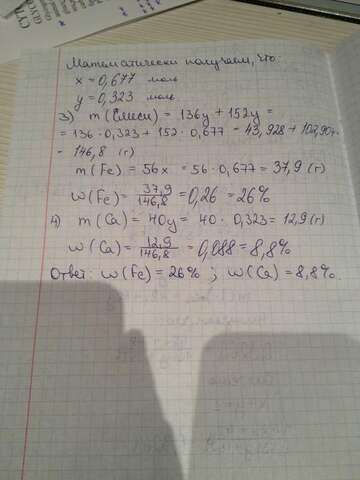 Математически получаем, что:
x = 0,677 моль
y = 0,323 моль.
3) m (смеси) = 136y + 152y =
= 136 · 0,323 + 152 · 0,677 = 43,928 + 102,904
= 146,8 (г)
m (Fe) = 56x = 56 · 0,677 = 37,9 (г)
w (Fe) = 37,9/146,8 = 0,26 = 26%
4) m (Ca) = 40y = 40 · 0,323 = 12,9 (г)
w (Ca) = 12,9/146,8 = 0,088 = 8,8%
Ответ: w (Fe) = 26% ; w (Ca) = 8,8%.